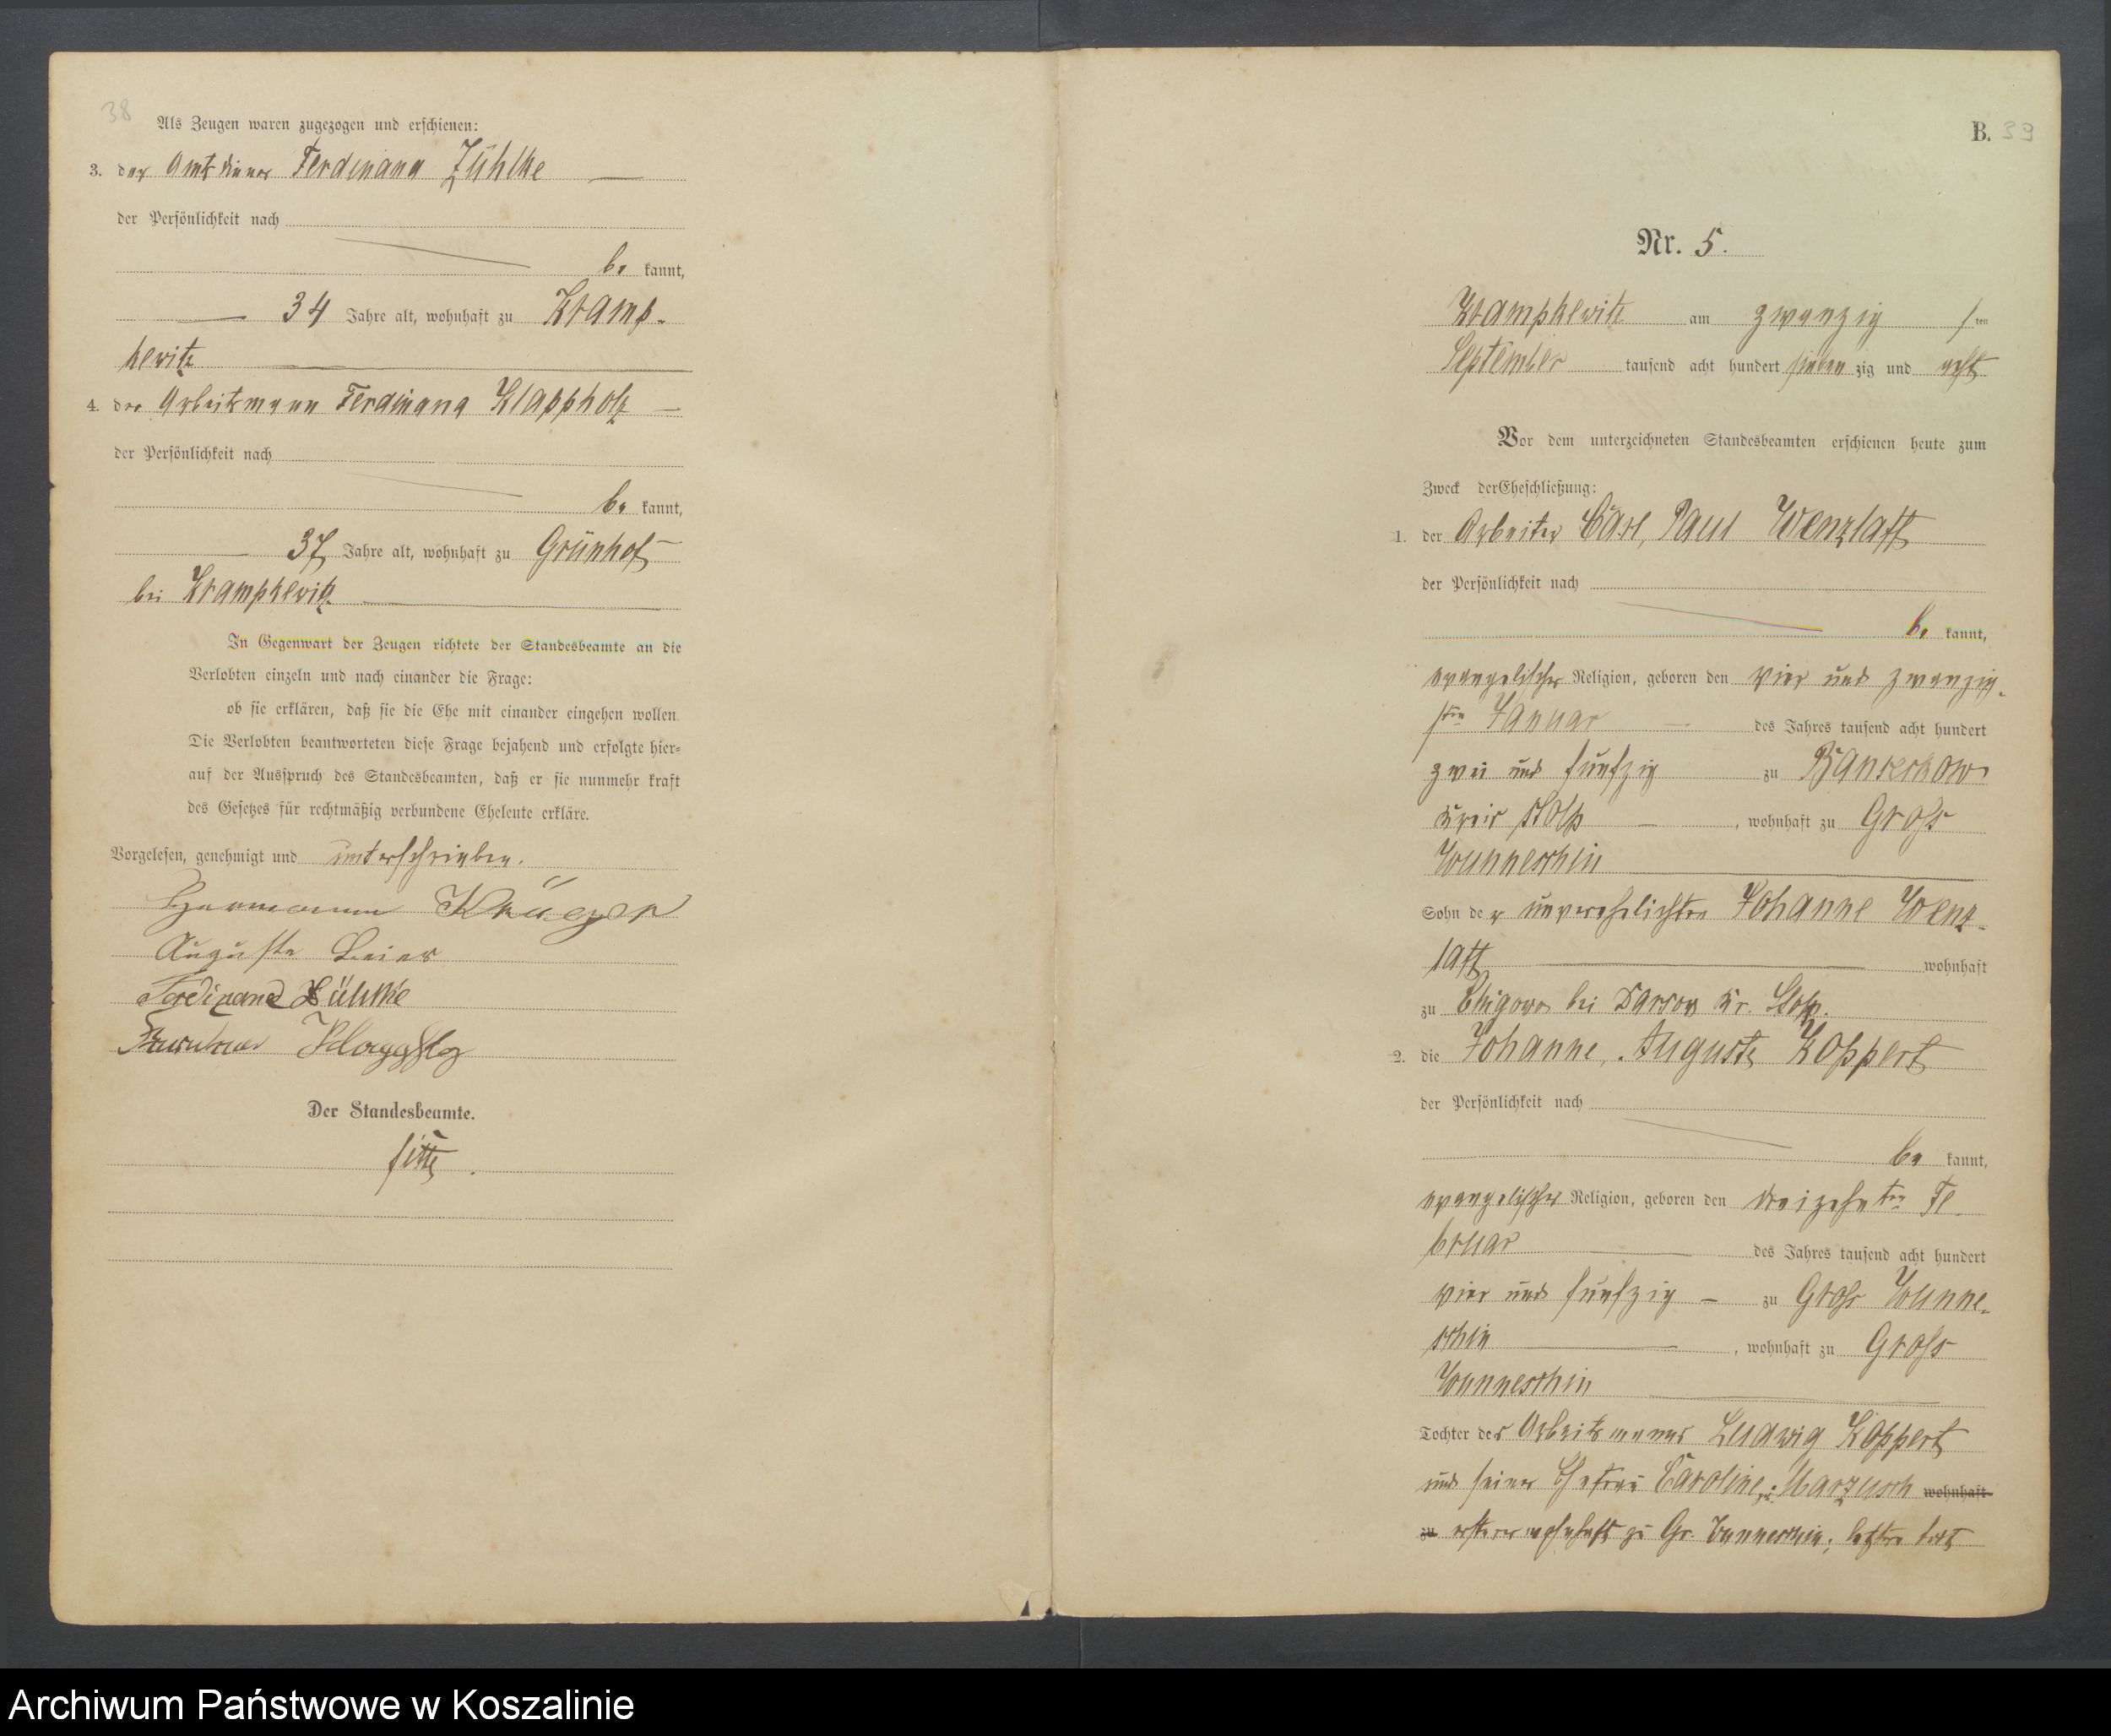 38
Als Zeugen waren zugezogen und erschienen:
3. der Amtsdiener Ferdinand Zühlke
der Persönlichkeit nach
be kannt,
34 Jahre alt, wohnhaft zu Kramp-
kewitz
4. der Arbeitsmann Ferdinand Klappholz
der Persönlichkeit nach
be kannt,
37 Jahre alt, wohnhaft zu Grünhof
bei Krampkewitz
In Gegenwart der Zeugen richtete der Standesbeamte an die
Verlobten einzeln und nach einander die Frage:
ob sie erklären, daß sie die Ehe mit einander eingehen wollen.
Die Verlobten beantworteten diese Frage bejahend und erfolgte hier-
auf der Ausspruch des Standesbeamten, daß er sie nunmehr kraft
des Gesetzes für rechtmäßig verbundene Eheleute erkläre.
Vorgelesen, genehmigt und unterschrieben.
Herrmann Krüeger
Auguste
Ferdinand Zühlke
Der Standesbeamte.
B. 39
Nr. 5.
Krampkewitz am zwanzig sten
September tausend acht hundert sieben zig und acht
Vor dem unterzeichneten Standesbeamten erschienen heute zum
Zweck der Eheschließung:
1. der Arbeiter Carl, Paul Wenzlaff
der Persönlichkeit nach
be kannt,
evangelischer Religion, geboren den vier und zwanzig-
sten Januar des Jahres tausend acht hundert
zwei und funfzig zu Banskow
Kreis Stolp, wohnhaft zu Gross
Wunneschin
Sohn der unverehelichten Johanne Wenz-
laff wohnhaft
zu bei Darsow Kr. Stolp.
2. die Johanne, Auguste Koppert
der Persönlichkeit nach
be kannt,
evangelischer Religion, geboren den dreizehnten Fe-
bruar des Jahres tausend acht hundert
vier und funfzig zu Gross Wunne-
schin, wohnhaft zu Gross
Wunneschin
Tochter des Arbeitsmanns Ludwig Koppert
und seiner Ehefrau Caroline, Marzusch wohnhaft
zu ersterer wohnhaft zu Gr. Wunneschin, letztre todt
Archiwum Państwowe w Koszalinie